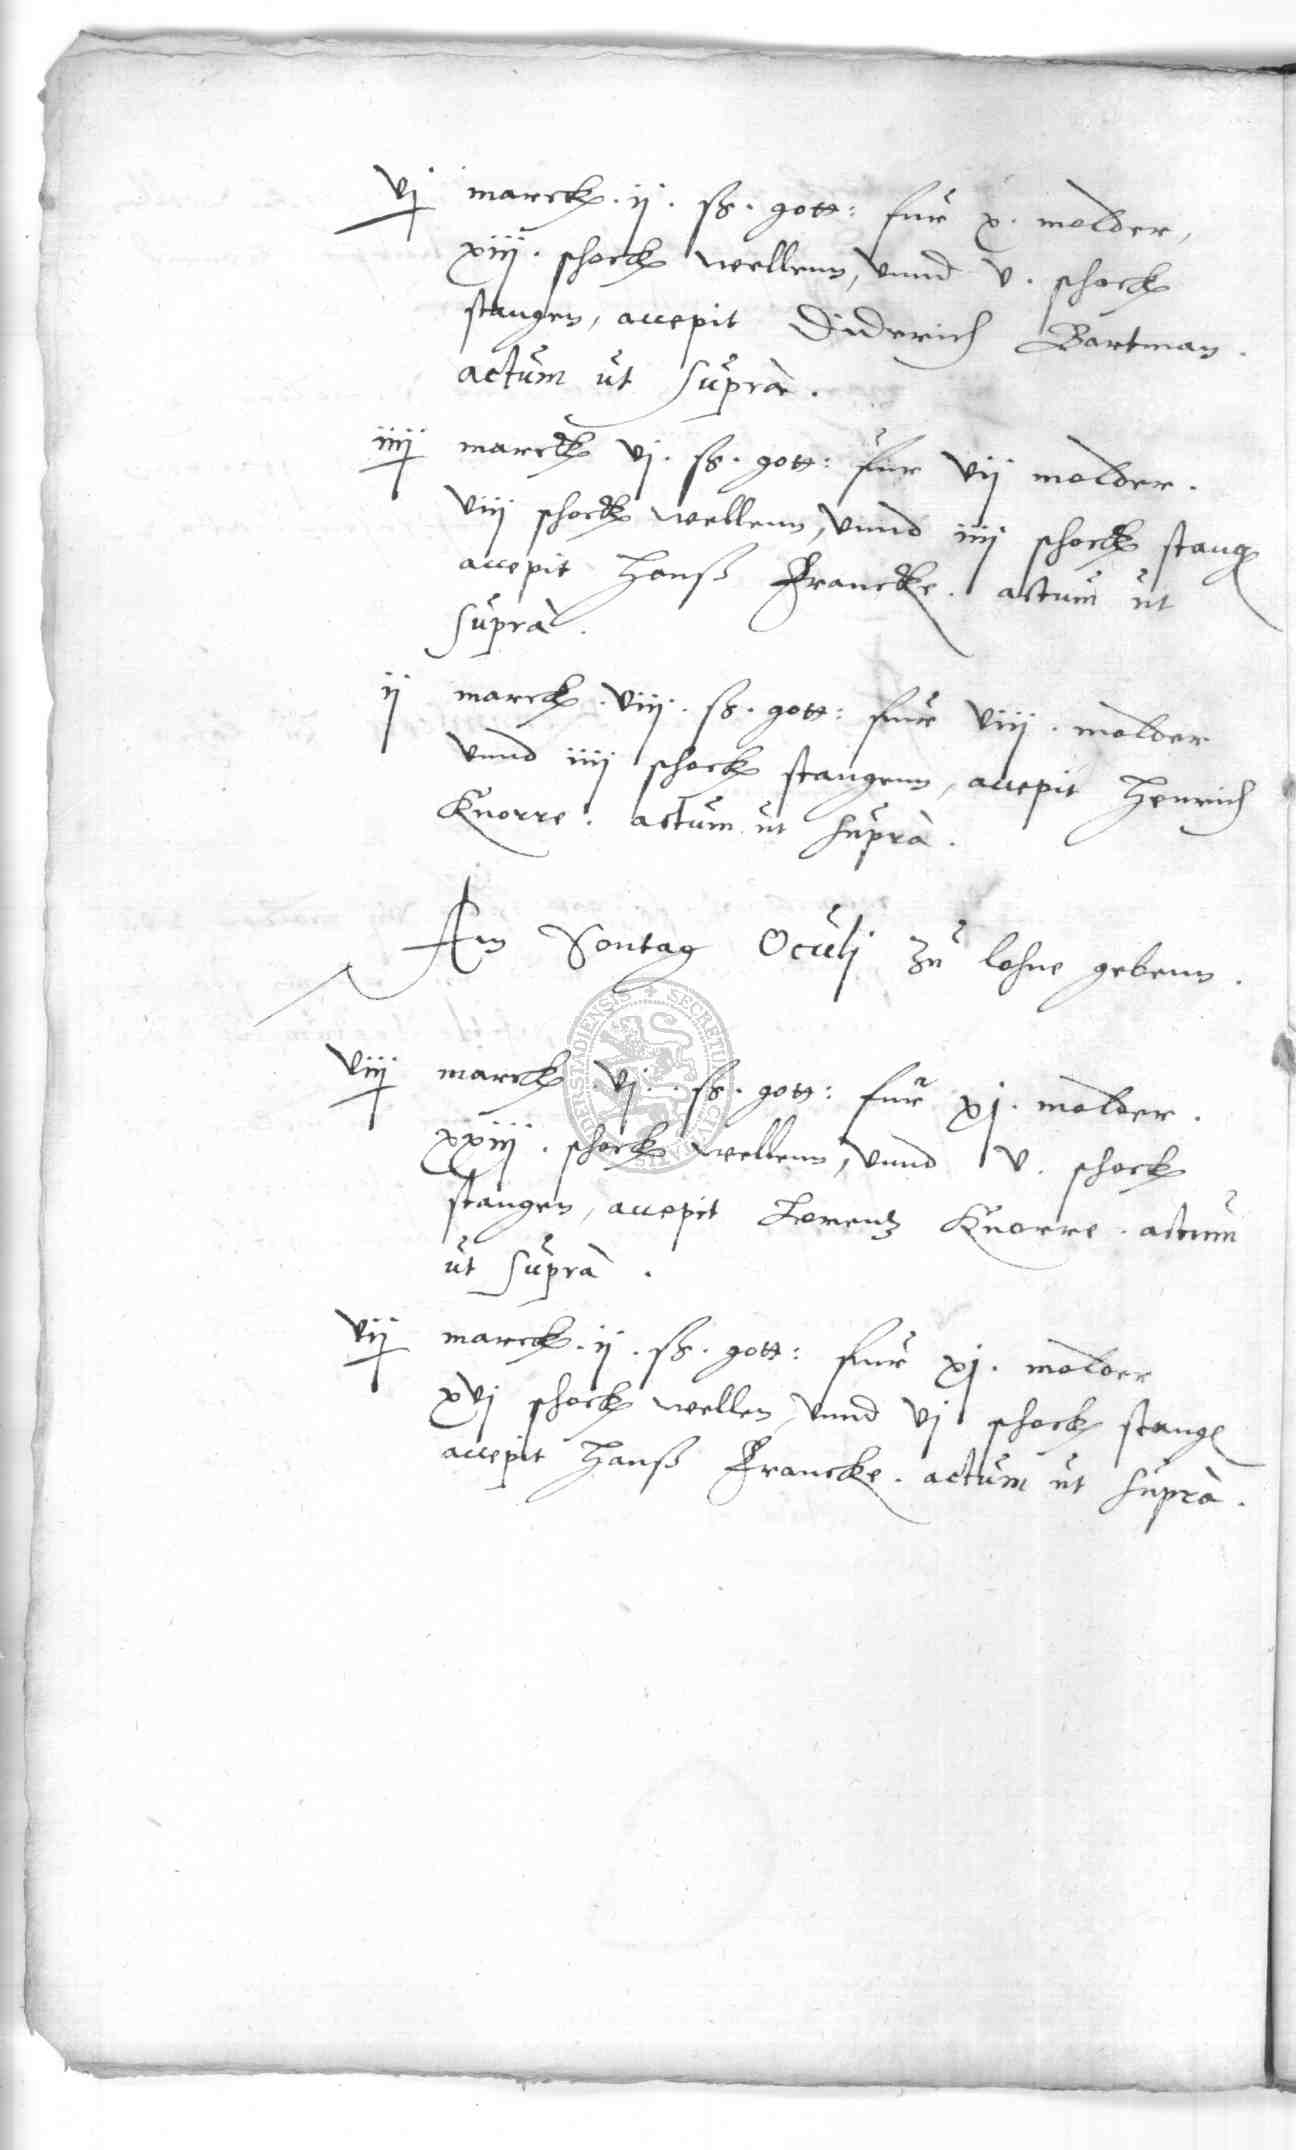 vj marck. ij. ß. gott: fur x. molder,
xiij. schock wellenn, vnnd v. schock
stangen, accepit Diderich Bartman.
actum ut supra.
iiij marck vj. ß. gott: fur vij molder.
viij schock wellenn, vnnd iiij schock stang
accepit Hanß Francke. actum ut
supra.
ij marck. viij. ß. gott: fur viij. molder
vnnd iiij schock stangenn, accepit Henrich
Knorre. actum ut supra.
Am Sontag Oculj zu lohne gebenn.
viij marck. vj. ß. gott: fur xj. molder.
xxiij. schock wellenn, vnnd v. schock
stangen, accepit Lorentz Knorre. actum
ut supra.
vij marck. ij. ß. gott: fur xj. molder
xvj schock wellen, vnnd vj schock stang
accepit Hanß Francke. actum ut supra.
SECRETU CIVITATIS DERSTADIENSIS